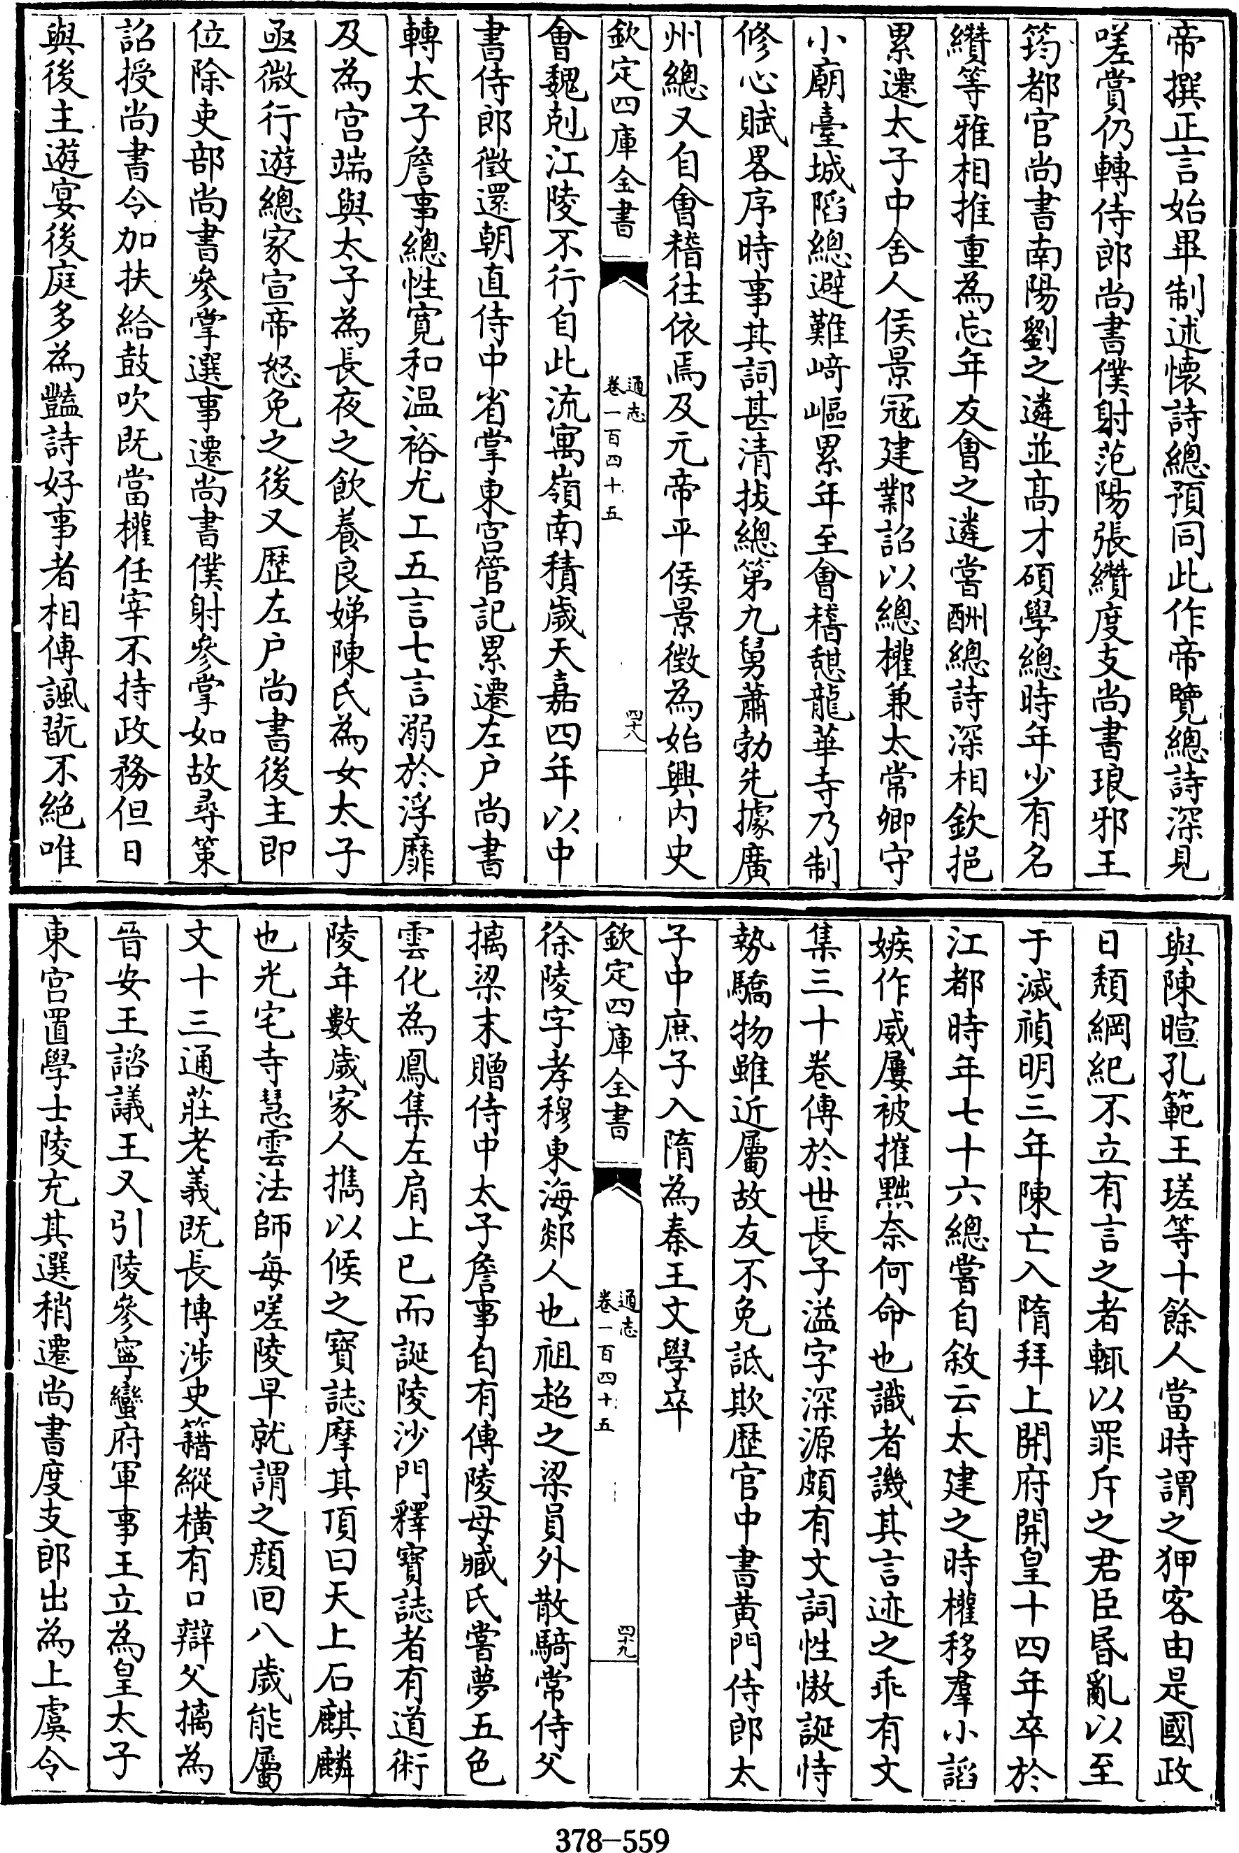 帝撰正言始畢制述懷詩總預同此作帝覽總詩深見
嗟賞仍轉侍郎尚書僕射范陽張纘度支尚書琅邪王
筠都官尚書南陽劉之遴並髙才碩學總時年少有名
纘等雅相推重為忘年友會之遴嘗酬總詩深相欽挹
累遷太子中舍人侯景冦建鄴詔以總權兼太常卿守
小廟臺城陷總避難崎嶇累年至會稽憇龍華寺乃制
修心賦畧序時事其詞甚清拔總第九舅蕭勃先據廣
州總又自會稽往依焉及元帝平侯景徵為始興内史
欽定四庫全書
通志
卷一百四十五
四十八
會魏剋江陵不行自此流寓嶺南積歲天嘉四年以中
書侍郎徵還朝直侍中省掌東宫管記累遷左户尚書
轉太子詹事總性寛和温裕尤工五言七言溺於浮靡
及為宫端與太子為長夜之飲養良娣陳氏為女太子
亟微行遊總家宣帝怒免之後又歴左户尚書後主即
位除吏部尚書參掌選事遷尚書僕射參掌如故尋策
詔授尚書令加扶給鼓吹既當權任宰不持政務但日
與後主遊宴後庭多為豔詩好事者相傳諷翫不絶唯
與陳暄孔範王瑳等十餘人當時謂之狎客由是國政
日頽綱紀不立有言之者輒以罪斥之君臣昏亂以至
于滅禎明三年陳亡入隋拜上開府開皇十四年卒於
江都時年七十六總嘗自敘云太建之時權移羣小諂
嫉作威屢被摧黜奈何命也識者譏其言迹之乖有文
集三十卷傳於世長子溢字深源頗有文詞性慠誕恃
勢驕物雖近屬故友不免詆欺歴官中書黄門侍郎太
子中庶子入隋為秦王文學卒
欽定四庫全書
通志
卷一百四十五
四十九
徐陵字孝穆東海郯人也祖超之梁員外散騎常侍父
摛梁末贈侍中太子詹事自有傳陵母臧氏嘗夢五色
雲化為鳳集左肩上已而誕陵沙門釋寶誌者有道術
陵年數歲家人攜以候之寶誌摩其頂曰天上石麒麟
也光宅寺慧雲法師每嗟陵早就謂之顔回八歲能屬
文十三通莊老義既長博涉史籍縱横有口辯父摛為
晉安王諮議王又引陵參寧蠻府軍事王立為皇太子
東宫置學士陵充其選稍遷尚書度支郎出為上虞令
378-559